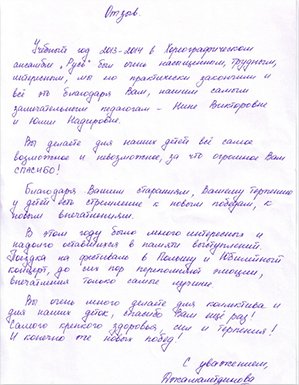 Отзыв.
Учебный год 2013-2014 в Хореографическом
ансамбле „Русь" был очень насыщенным, трудным,
интересным, мы его практически закончили и
всё это благодаря Вам, нашим самым
замечательным педагогам - Нине Викторовне
и Юлии Надировне.
Вы делаете для наших детей всё самое
возможное и невозможное, за что огромное Вам
СПАСИБО!
Благодаря Вашим стараниям, Вашему терпению
у детей есть стремление к новым победам, к
новым впечатлениям.
В этом году было много интересных и
надолго оставшихся в памяти выступлений.
Поездка на фестиваль в Польшу и Юбилейный
концерт, до сих пор переполняют эмоции,
впечатления только самые лучшие.
Вы очень много делаете для коллектива и
для наших деток, спасибо Вам ещё раз!
Самого крепкого здоровья, сил и терпения!
И конечно же новых побед!
С уважением,